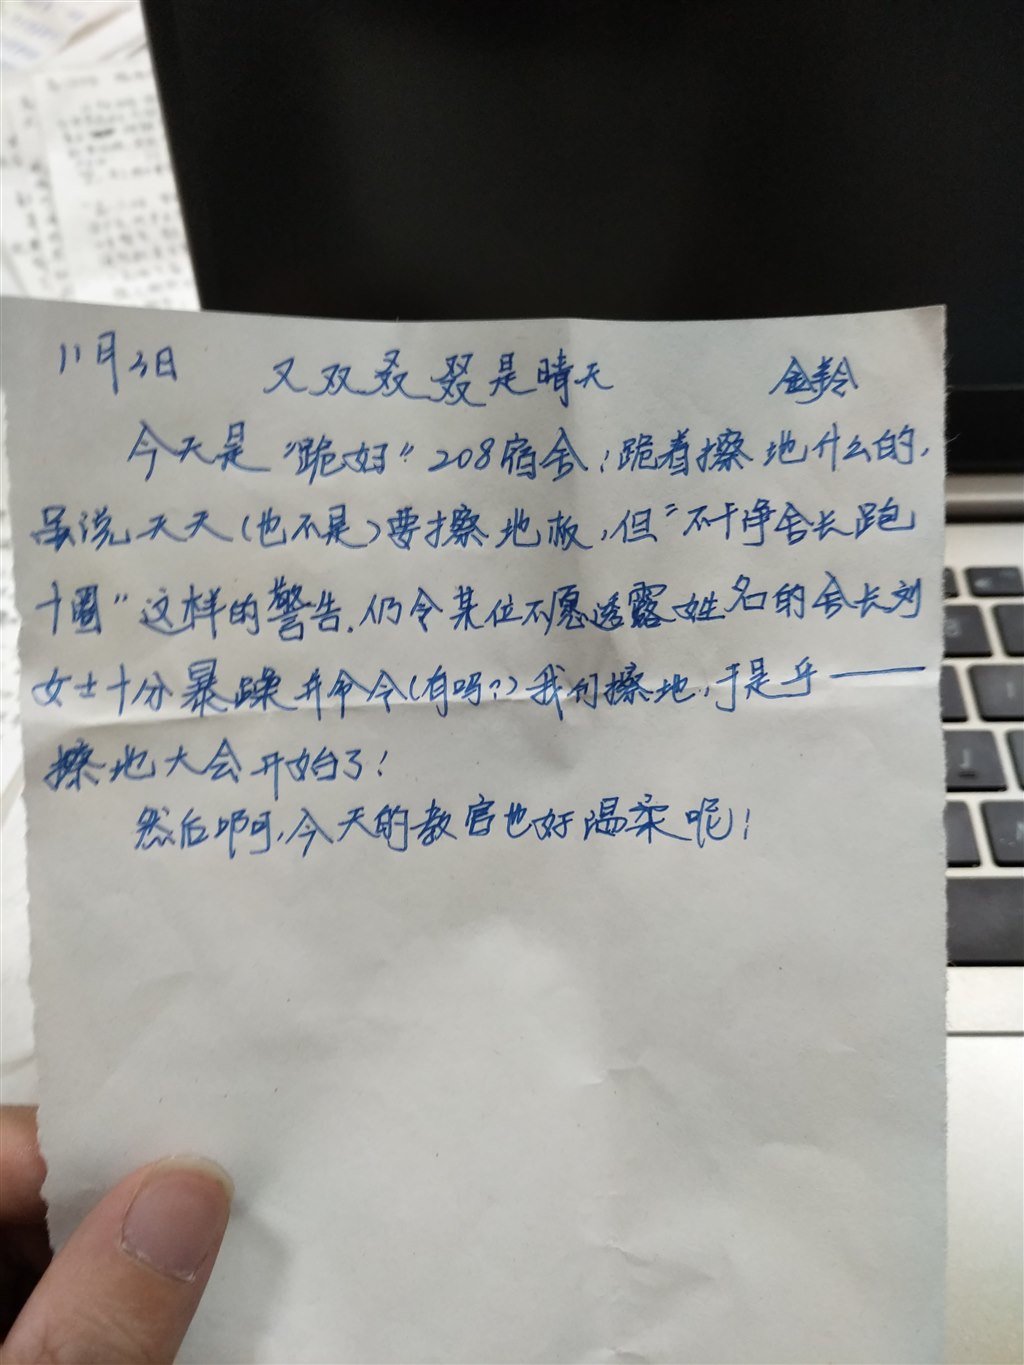 11月3日 又双叒叕是晴天 金羚
今天是“跪妇”208宿舍;跪着擦地什么的,
虽说天天(也不是)要擦地板,但“不干净舍长跑
十圈”这样的警告,仍令某位不愿透露姓名的舍长刘
女士十分暴躁并命令(有吗?)我们擦地,于是乎——
擦地大会开始了!
然后啊,今天的教官也好温柔呢!